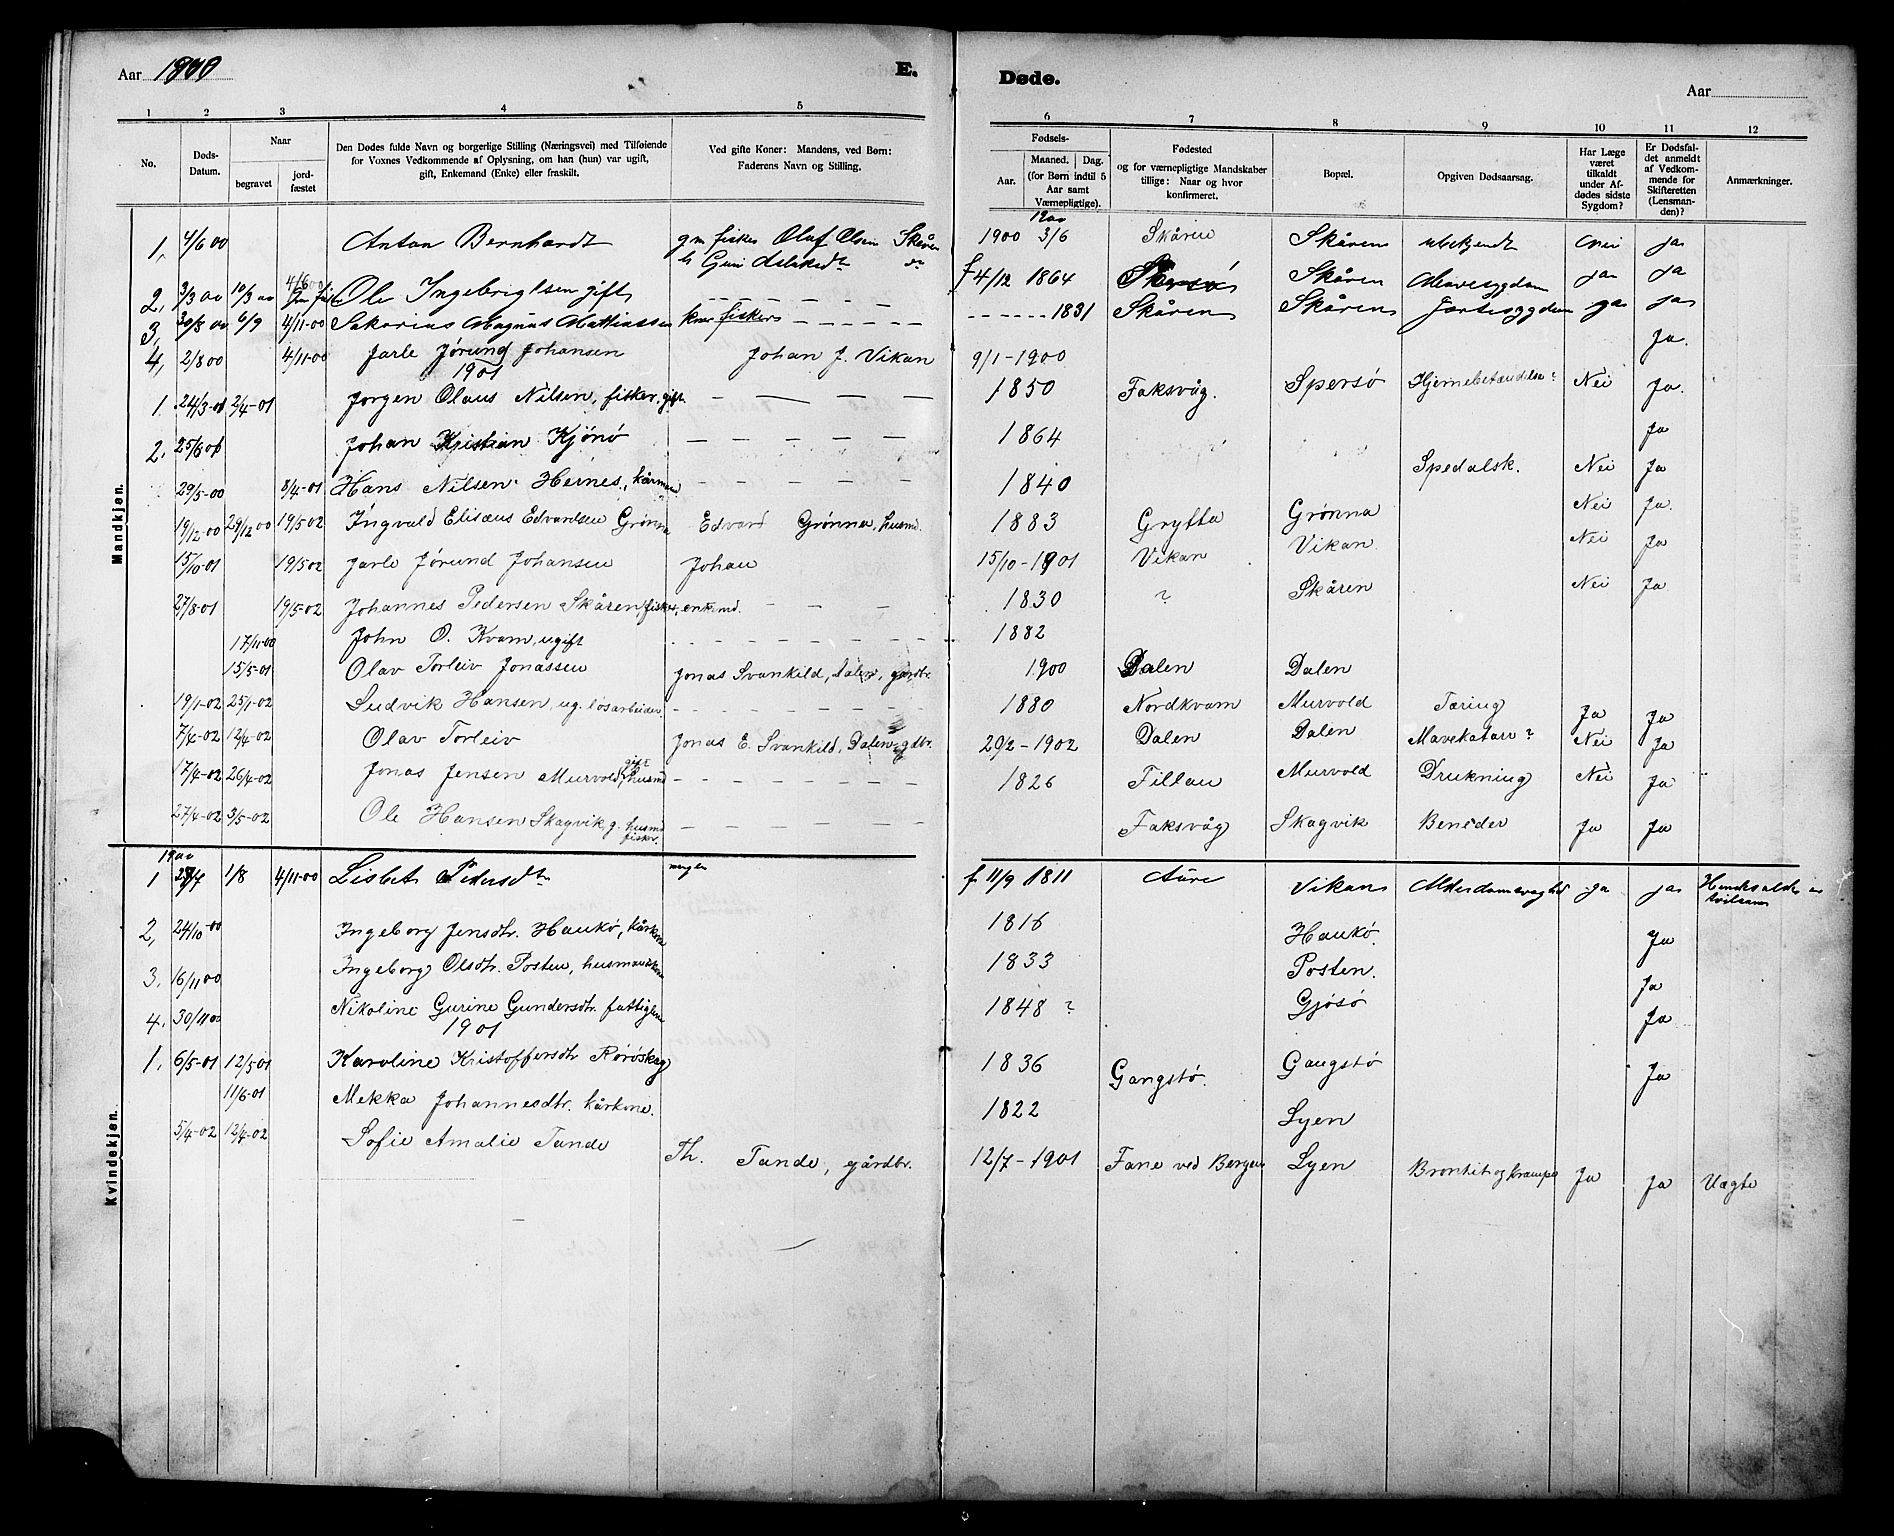 Aar 1900 E.
Døde. Aar
1 2 3 4 5 6 7 8 9 10 11 12
No.
Døds-Datum.
Naar
begravet
jord-fæstet
Den Dødes fulde Navn og borgerlige Stilling (Næringsvei) med Tilføiende
for Voxnes Vedkommende af Oplysning, om han (hun) var ugift,
gift, Enkemand (Enke) eller fraskilt.
Ved gifte Koner: Mandens, ved Børn:
Faderens Navn og Stilling.
Fødsels-
Aar.
Maaned. Dag.
(for Børn indtil 5
Aar samt
Værnepligtige).
Fødested
og for værnepligtige Mandskaber
tillige: Naar og hvor
konfirmeret.
Bopæl.
Opgiven Dødsaarsag.
Har Læge
været
tilkaldt
under Af-
dødes sidste
Sygdom?
Er Dødsfal-
det anmeldt
af Vedkom-
mende for
Skifteretten
(Lensman-
den)?
Anmærkninger.
Mandkjøn.
1, 4/6 00 Anton Bernhardt gm fisker Olaf Olsen Skåren 1900 3/6 Skåren Skåren ubekjendt nei ja
2, 3/3 00 10/3 00 4/6 00 Ole Ingebrigtsen gift f 4/12 1864 Skåren Mavesygdom ja ja
3, 30/8 00 6/9 4/11-00 Sakarias Magnus Mattiassen fisker 1831 Skåren Skåren ja ja
4, 2/8 00 4/11-00 Jarle Jørund Johansen Johan J. Vikan 9/1-1900 Ja.
1901
1. 24/3-01 2/4-01 Jørgen Olaus Nilsen, fisker, gift 1850 Faksvåg. Spersø Hjernebetændelse? Nei Ja.
2. 25/8 01 Johan Kristian Kjønø 1864 Ja
29/5-00 8/4-01 Hans Nilsen Heines, kårmand 1840 Spedalsk. Nei Ja
19/12-00 29/12 00 19/5 02 Ingvald Elisæus Edvardsen Grønna Edvard Grønna, husmd. 1883 Grytta Grønna Nei Ja.
15/10-01 19/5 02 Jarle Jørund Johansen Johan 15/10-1901 Vikan Vikan Nei Ja
27/8-01 19/5-02 Johannes Pedersen Skåren, fisker, enkemd. 1830 ? Skåren Nei Ja
17/11-00 John O. Kvam, ugift 1882
15/5-01 Olav Torleiv Jonassen Jonas Svankild, Dalen, gårdbr. 1900 Dalen Dalen
19/1-02 25/1-02 Ludvik Hansen, ug. løsarbeider 1880 Nordkvam Murvold Tæring Ja Ja
7/4-02 12/4-02 Olav Torleiv Jonas E. Svankild, Dalen, gdbr. 20/2-1902 Dalen Dalen Mavekatarr? Nei Ja
17/4-02 26/4-02 Jonas Jensen Murvold, gift husmd 1826 Tiltau Murvold Drukning Nei Ja
27/4-02 3/5-02 Ole Hansen Skagvik, g. husmd fisker. Faksvåg Skagvik Beneder Ja Ja
Kvindekjøn.
1900
1 1/8 4/11-00 Lisbet Pedersdtr f 11/9 1811 Aure Vikan Alderdomsvaghed ja ja
2, 24/10-00 Ingeborg Jensdtr. Haukø, kårkone 1816 Haukø. Ja
3. 16/11 00 Ingeborg Olsdtr. Posten, husmandskone 1833 Posten. Ja
4. 30/11 00 Nikoline Gurine Gundersdtr. fattiglem 1848 ? Gjøsø Ja
1901
1. 6/5-01 12/5-01 Karoline Kristoffersdtr Rørøskag 1836 Gangstø. Gangstø Ja
11/6-01 Mekka Johannesdtr. kårkone. 1822 Lyen
5/4-02 12/4-02 Sofie Amalie Tande Th. Tande, gårdbr. 12/7-1901 Fane ved Bergen Lyen Bronkit og krampe Ja Ja Uægte